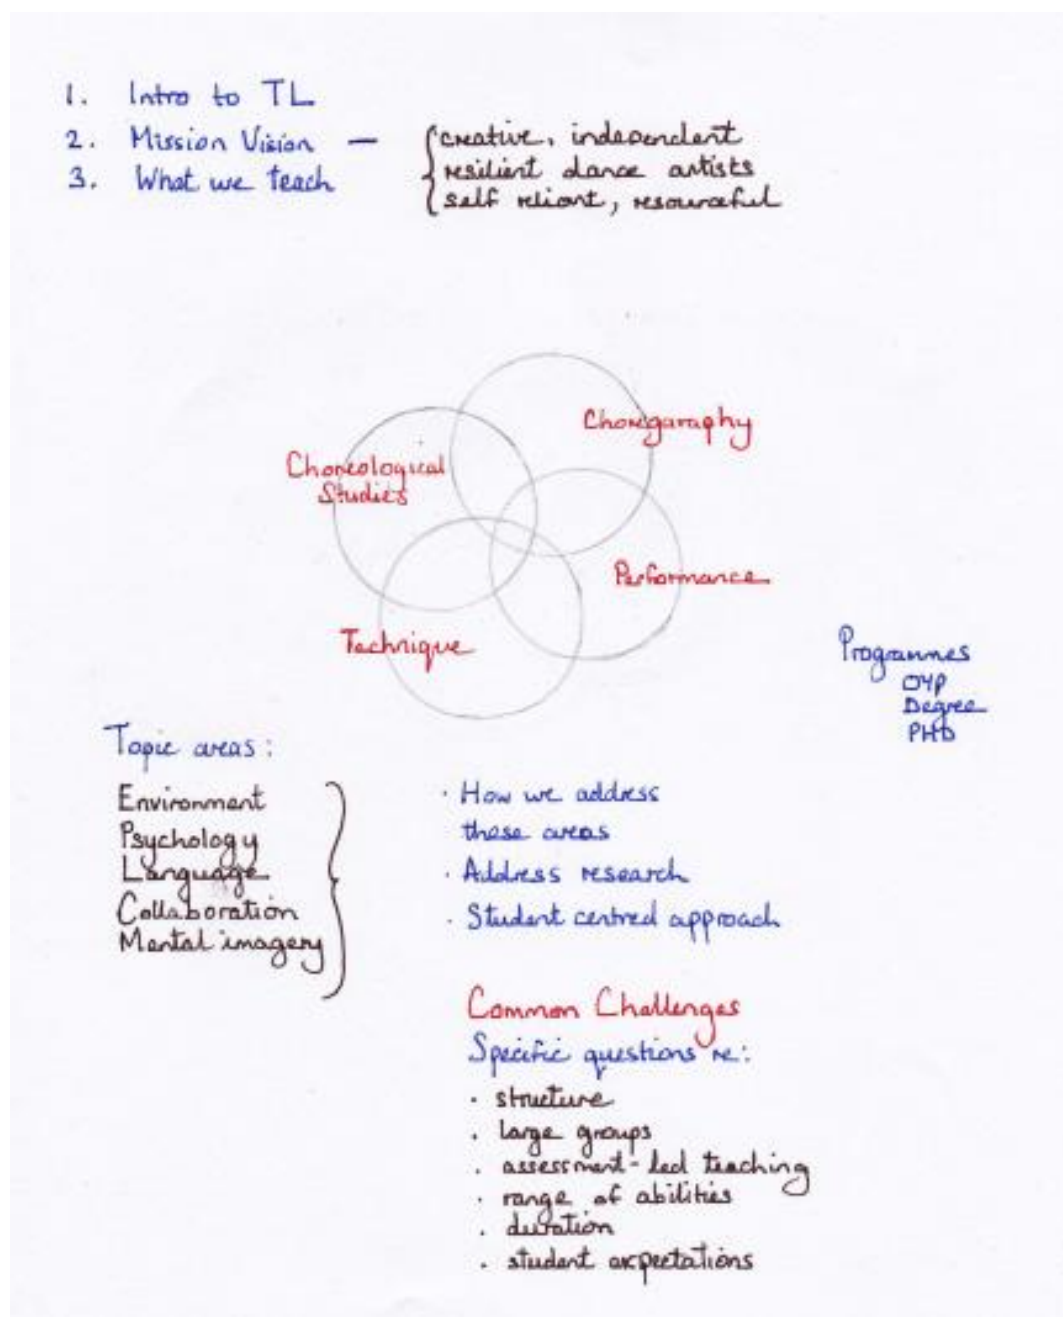 1. Intro to TL
2. Mission Vision — creative, independent
3. What we teach resilient dance artists
self reliant, resourceful
Choregaraphy
Choreological
Studies
Performance
Technique
Programmes
OYP
Degree
PHD
Topic areas:
Environment
Psychology
Language
Collaboration
Mental imagery
· How we address
these areas
· Address research
· Student centred approach
Common Challenges
Specific questions re:
· structure
· large groups
· assessment-led teaching
· range of abilities
· duration
· student expectations